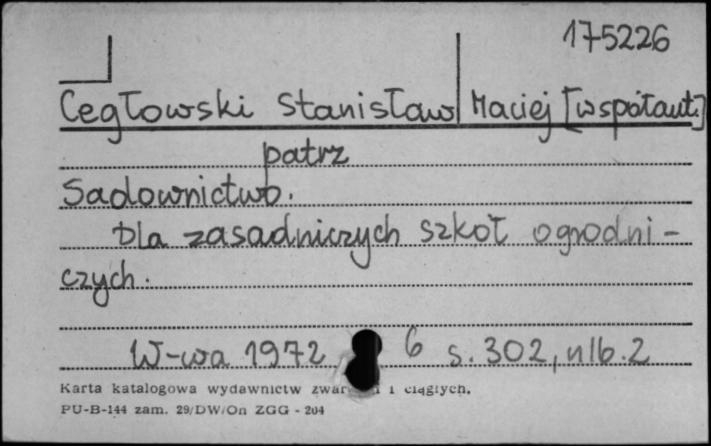 175226
Cegłowski Stanisław Maciej [współaut.]
patrz
Sadownictwo.
Dla zasadniczych szkół ogrodni-
czych.
W-wa 1972, 6 s. 302, nlb. 2
Karta katalogowa wydawnictw i ciągłych.
PU-B-144 zam. 29/DW/On ZGG - 204